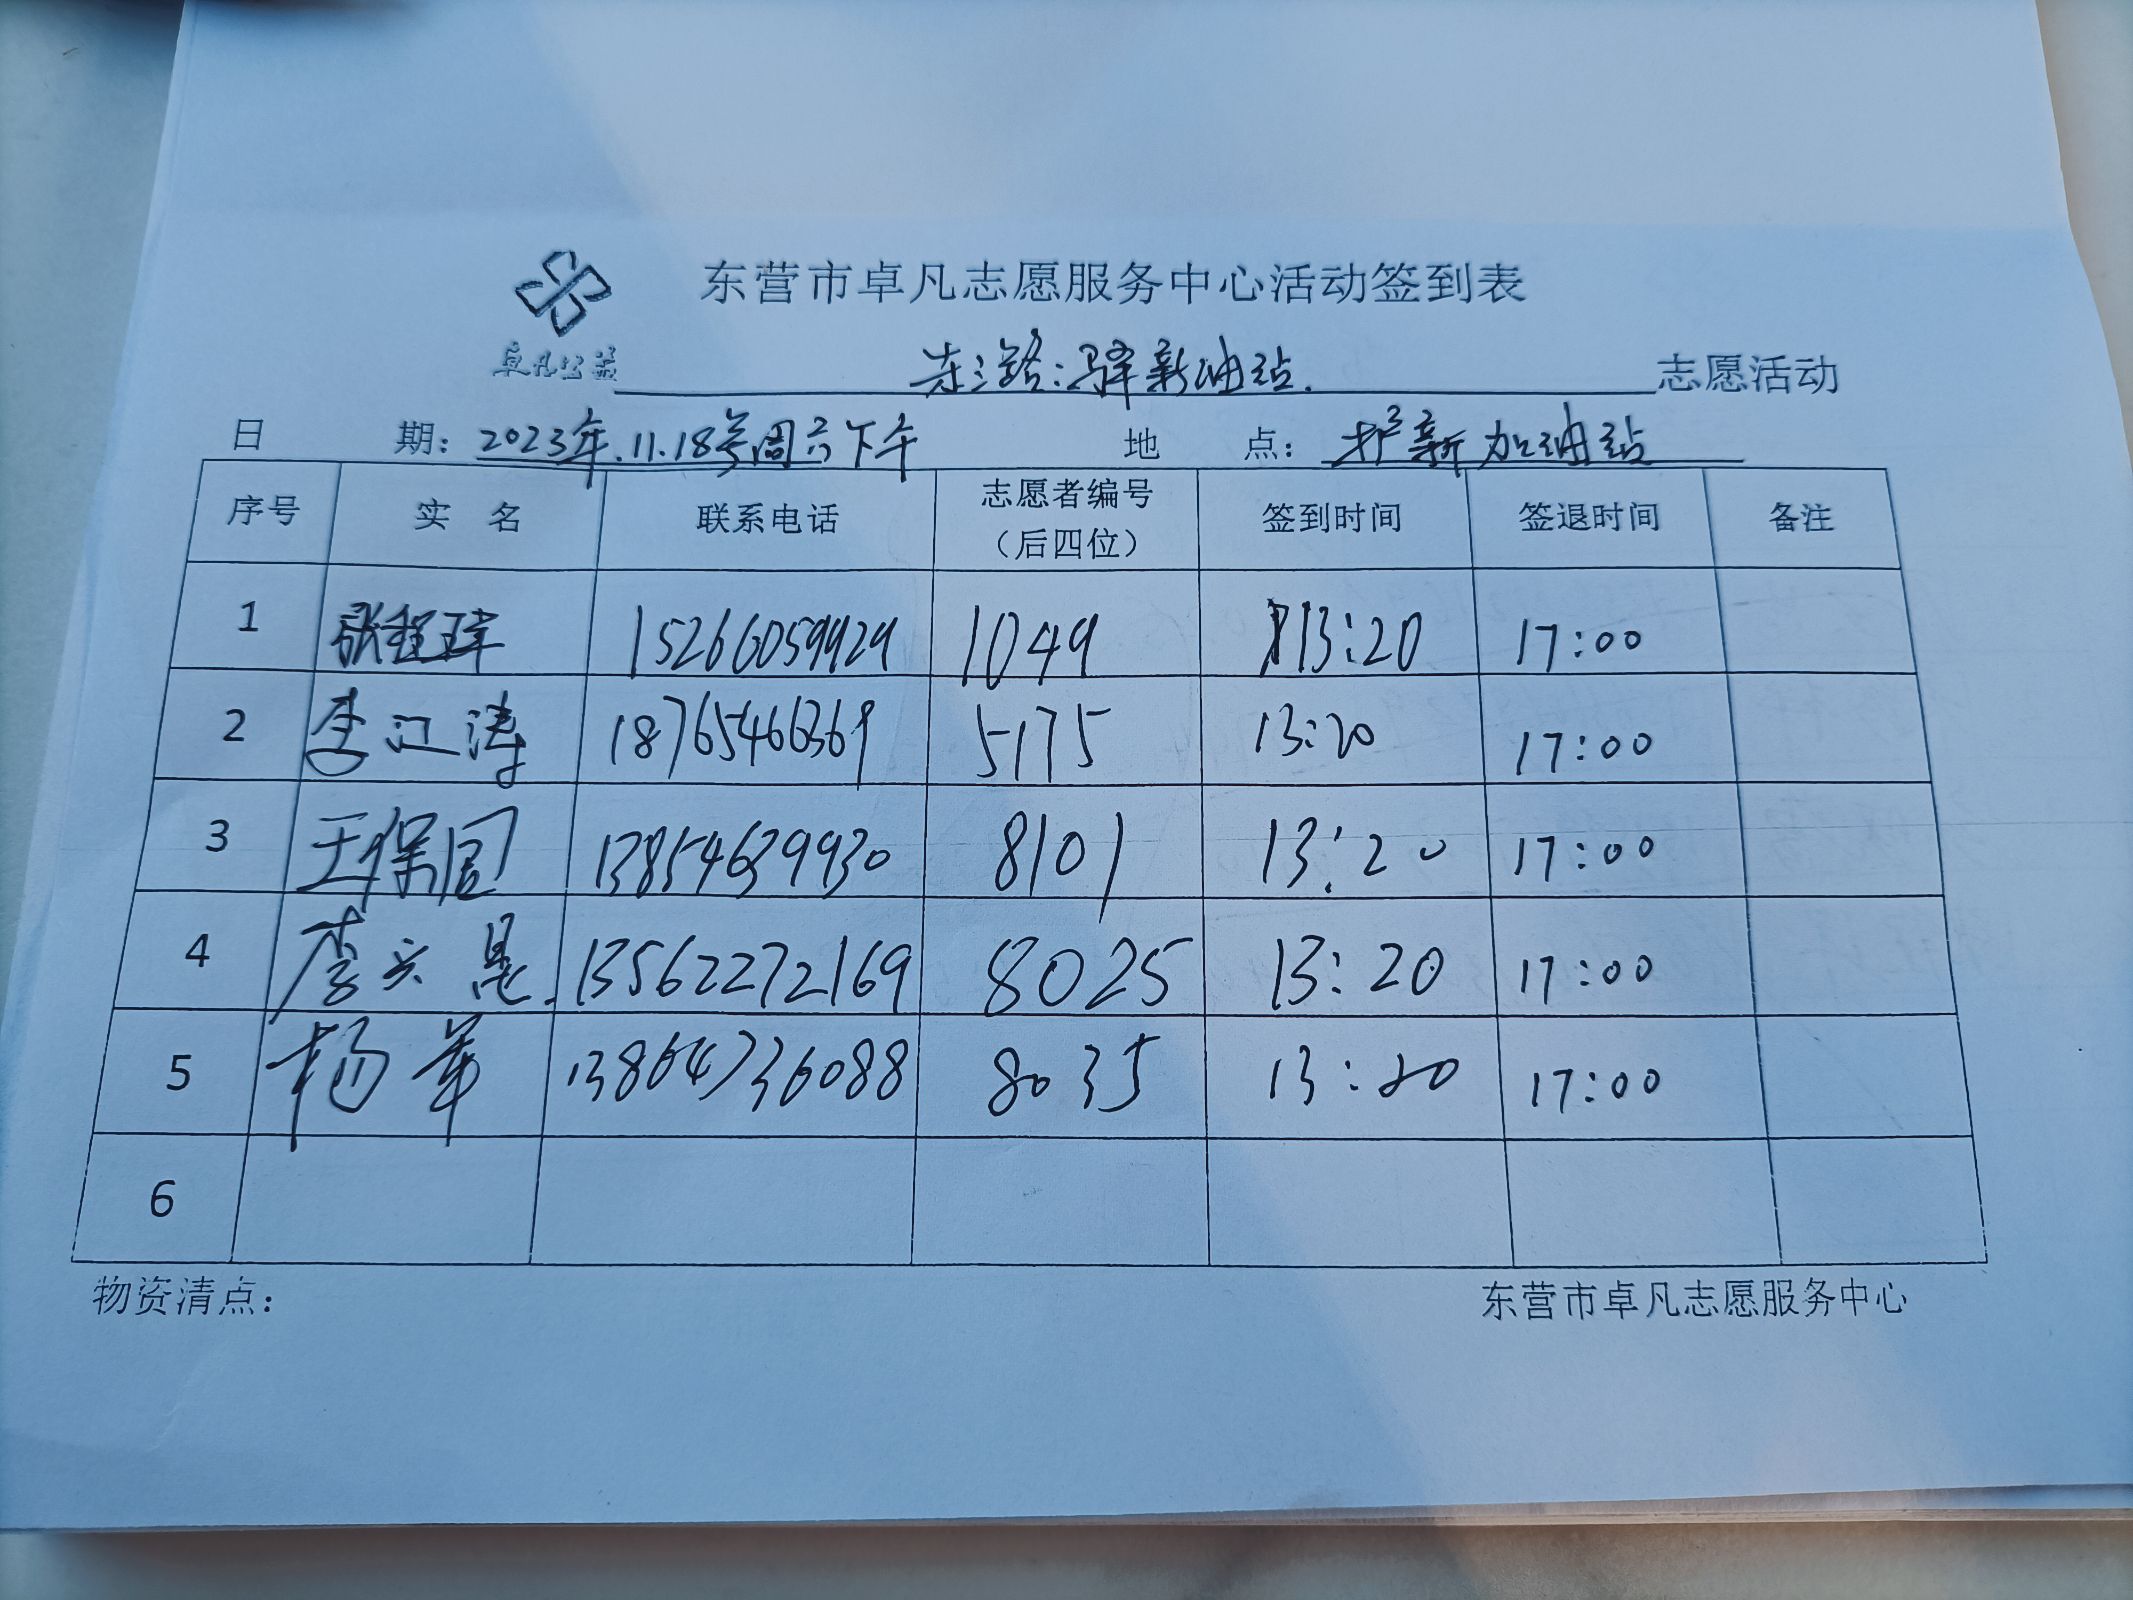 东营市卓凡志愿服务中心活动签到表
卓凡公益
东三路:驿新油站. 志愿活动
日 期: 2023年.11.18号周六下午 地 点: 护新加油站
序号 实 名 联系电话 志愿者编号(后四位) 签到时间 签退时间 备注
1 张程玮 15266059929 1049 13:20 17:00
2 李江涛 18765466369 5175 13:20 17:00
3 王保国 13854639930 8101 13:20 17:00
4 李兴昆. 13562272169 8025 13:20 17:00
5 杨军 13864736088 8035 13:20 17:00
6
物资清点: 东营市卓凡志愿服务中心